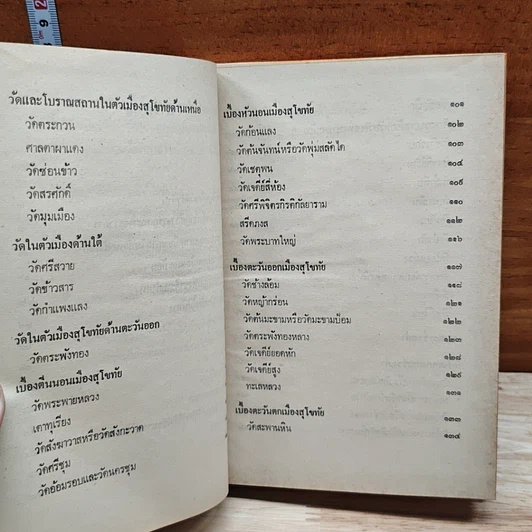 วัดและโบราณสถานในตัวเมืองสุโขทัยด้านเหนือ
วัดตระกวน
ศาลตาผาแดง
วัดซ่อนข้าว
วัดสรศักดิ์
วัดมุมเมือง
วัดในตัวเมืองด้านใต้
วัดศรีสวาย
วัดข้าวสาร
วัดกำแพงแลง
วัดในตัวเมืองสุโขทัยด้านตะวันออก
วัดตระพังทอง
เบื้องตีนนอนเมืองสุโขทัย
วัดพระพายหลวง
เตาทุเรียง
วัดสังฆาวาสหรือวัดสังกะวาด
วัดศรีชุม
วัดอ้อมรอบและวัดนครชุม
เบื้องหัวนอนเมืองสุโขทัย ๑๐๑
วัดก้อนแลง ๑๐๒
วัดต้นจันทน์หรือวัดพุ่มสลัดได ๑๐๓
วัดเชตุพน ๑๐๔
วัดเจดีย์สี่ห้อง ๑๐๙
วัดศรีพิจิตรกิรติกัลยาราม ๑๑๐
สรีดภงส ๑๑๒
วัดพระบาทใหญ่ ๑๑๖
เบื้องตะวันออกเมืองสุโขทัย ๑๑๗
วัดช้างล้อม ๑๑๘
วัดหญ้ากร่อน ๑๒๑
วัดต้นมะขามหรือวัดมะขามป้อม ๑๒๒
วัดตระพังทองหลาง ๑๒๓
วัดเจดีย์ยอดหัก ๑๒๘
วัดเจดีย์สูง ๑๒๙
ทะเลหลวง ๑๓๑
เบื้องตะวันตกเมืองสุโขทัย ๑๓๓
วัดสะพานหิน ๑๓๔